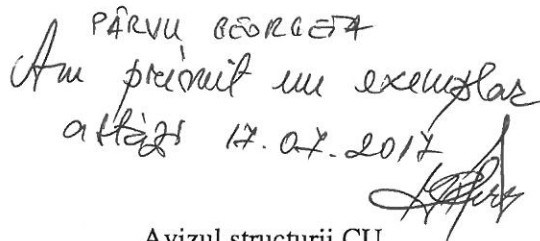 PÂRVU GEORGETA
Am primit un exemplar
astăzi 17.07.2017
Avizul structurii CU